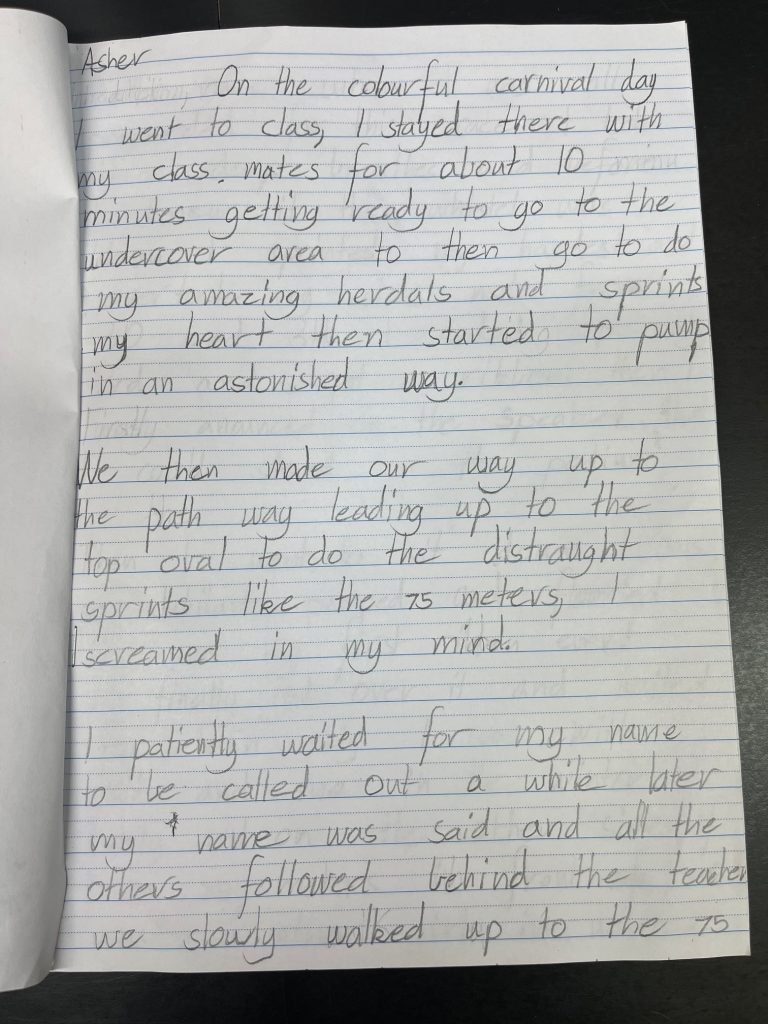 Asher
On the colourful carnival day
I went to class, I stayed there with
my class. mates for about 10
minutes getting ready to go to the
undercover area to then go to do
my amazing herdals and sprints
my heart then started to pump
in an astonished way.
We then made our way up to
the path way leading up to the
top oval to do the distraught
sprints like the 75 meters, I
screamed in my mind.
I patiently waited for my name
to be called out a while later
my name was said and all the
others followed behind the teacher
we slowly walked up to the 75